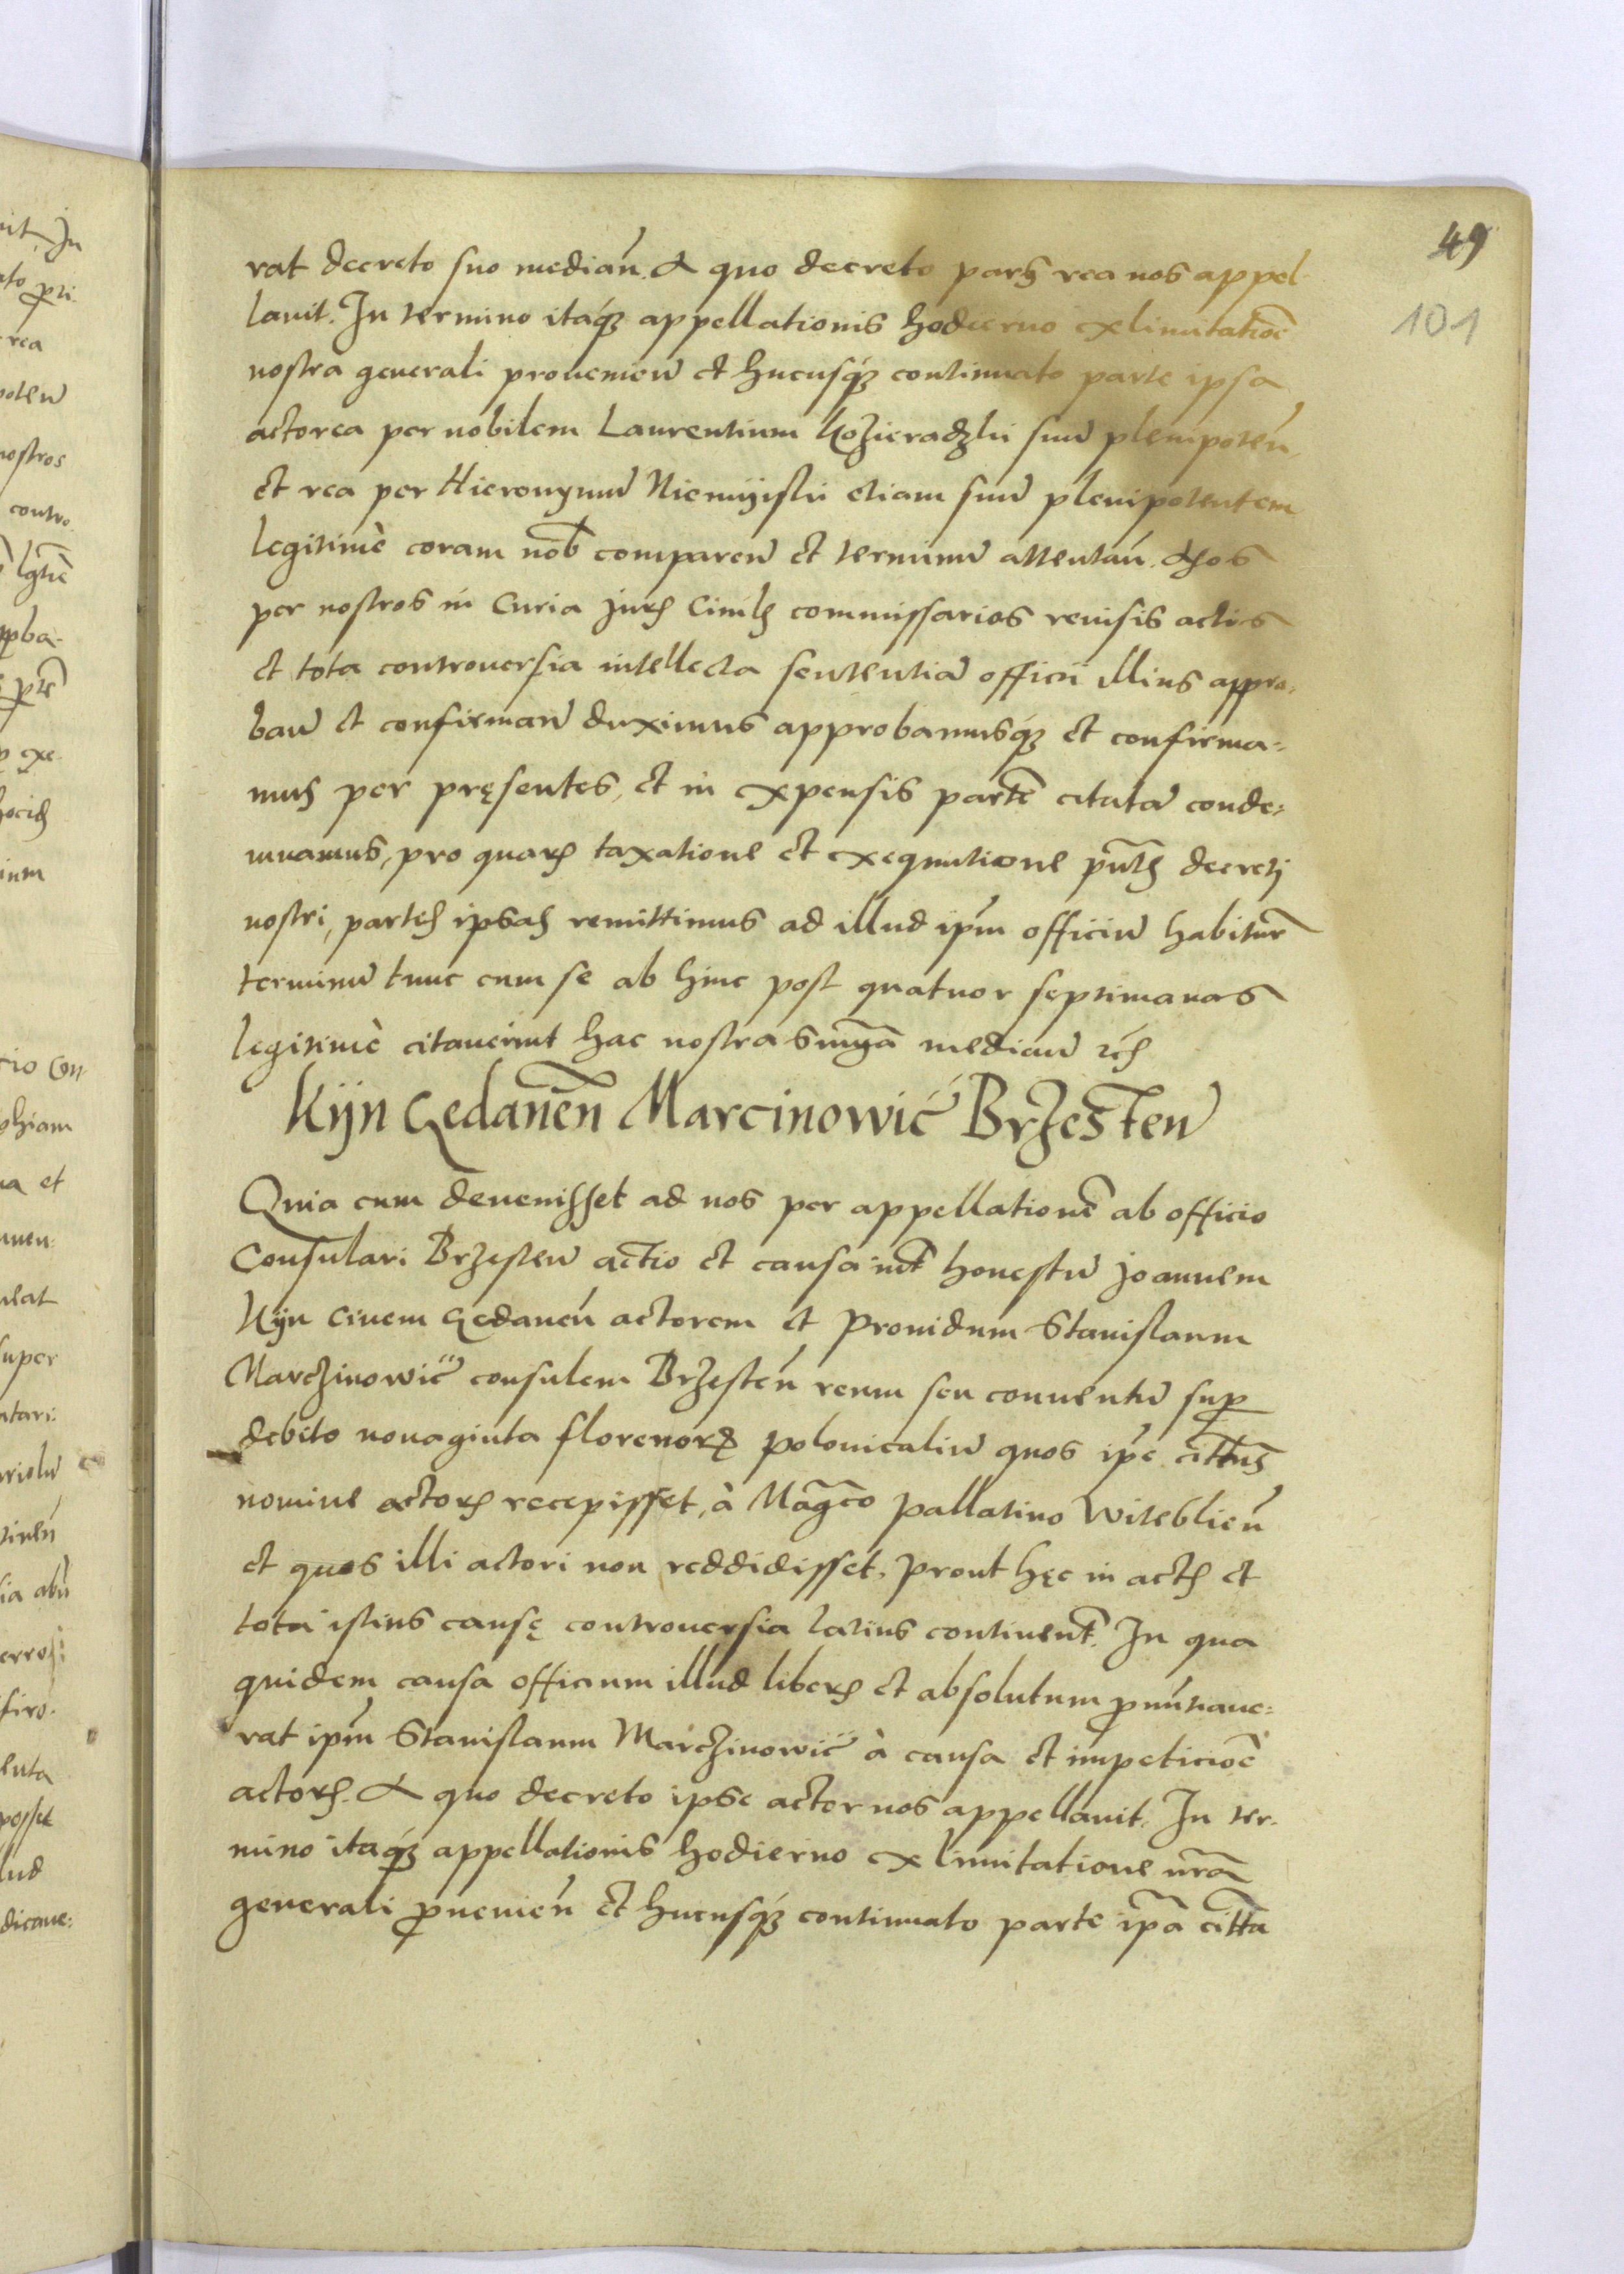 49
101
rat decreto suo median̄. A quo decreto pars rea nos appel-
lauit. In termino itaq́ꝫ appellationis hodierno ex limitatiōe
nostra generali prouenien̄ et hucusq́ꝫ continuato parte ipsa
actorea per nobilem Laurentium Kozieradzki suū plenipoten̄
et rea per Hieronymū Niemyski etiam suū plenipotentem
legitimè coram nob̄ comparen̄ et terminū attentan̄. Nos
per nostros in Curia juris Ciuilis commissarios reuisis actis
et tota controuersia intellecta sententiā officii illius appro-
ban̄ et confirman̄ duximus approbamusq́ꝫ et confirma-
mus per pręsentes, et in expensis partē citatā conde-
mnamus, pro quarū taxatione et exequutione pn̄tis decreti
nostri, partes ipsas remittimus ad illud ipm̄ officiū habitur̄
terminū tunc cum se ab hinc post quatuor septimanas
legitimè citauerint hac nostra sn̄ia median̄ etc
Kijn Gedanēn Marcinowić Brzesten̄
Quia cum deuenisset ad nos per appellationē ab officio
Consulari Brzesten̄ actio et causa int̄ honestū joannem
Kijn Ciuem Gedanen̄ actorem et Prouidum Stanislaum
Marczinowić consulem Brzesten̄ reum seu conuentū sup̄
debito nonaginta florenorꝝ polonicaliū quos ip̄e citt̄us
nomine actoris recepisset, à Maḡco Pallatino Witeblien̄
et quos illi actori non reddidisset, Prout hęc in actis et
tota istius causę controuersia latius continent̄. In qua
quidem causa officium illud liberū et absolutum pronūnciaue-
rat ipm̄ Stanislaum Marczinowić à causa et impeticiōe
actoris. A quo decreto ipse actor nos appellauit. In ter-
mino itaq́ꝫ appellationis hodierno ex limitatione nr̄a
generali ꝓuenien̄ et hucusq́ꝫ continuato parte ip̄a citt̄a